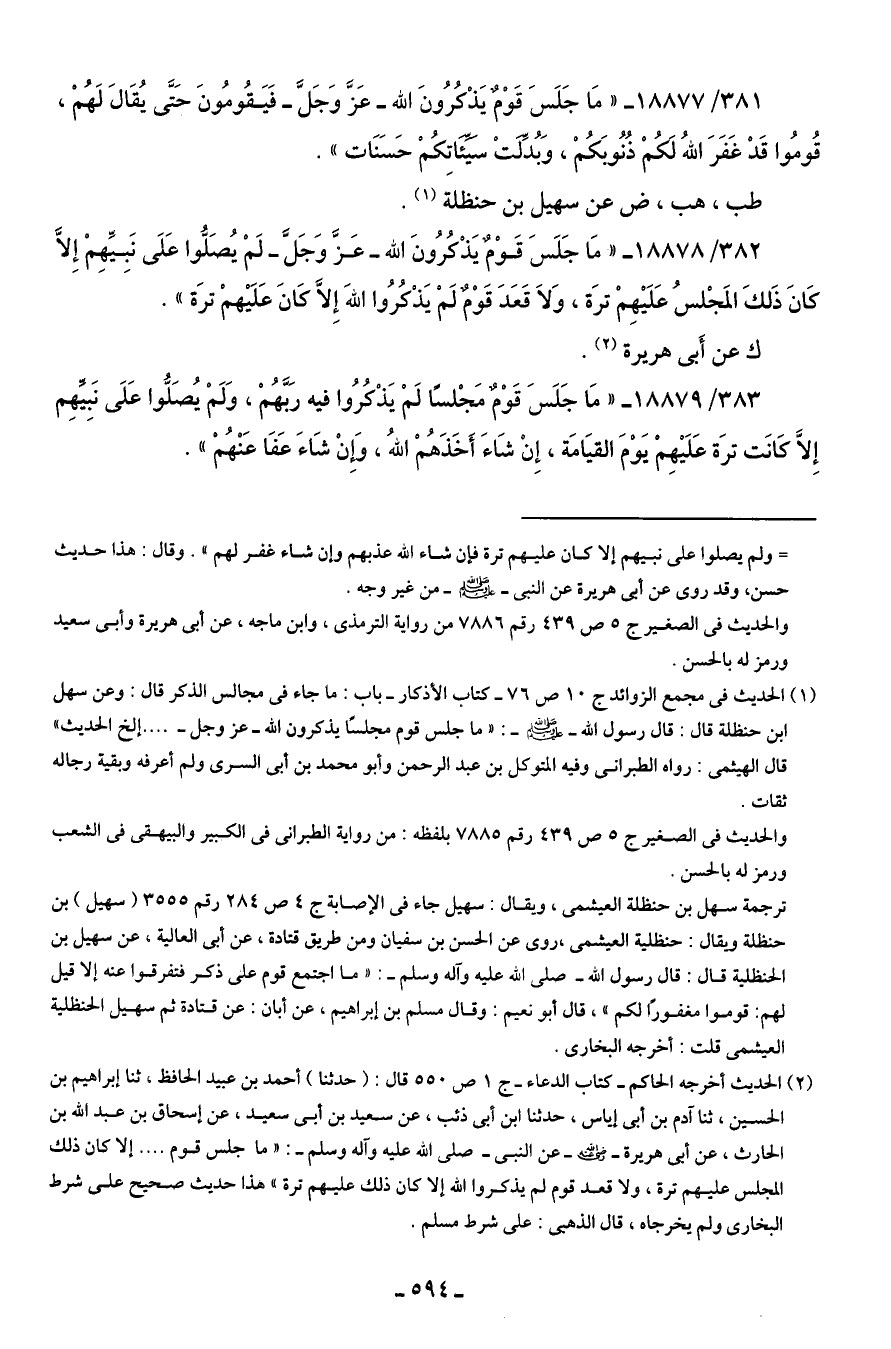 ٣٨١/ ١٨٨٧٧ـ « مَا جَلَسَ قَوْمٌ يَذْكُرُونَ الله ـ عَزَّ وَجَلَّ ـ فَيَـقُومُونَ حَتَّى يُقَالَ لَهُمْ ،
قُومُوا قَدْ غَفَرَ اللهُ لَكُمْ ذُنُوبَكُمْ ، وَبُدِّلَتْ سَيِّئَاتِكُمْ حَسَنَات » .
طب ، هب ، ض عن سهيل بن حنظلة (١) .
٣٨٢/ ١٨٨٧٨ـ « مَا جَلَسَ قَـومٌ يَذْكُرُونَ الله ـ عَـزَّ وَجَلَّ ـ لَمْ يُصَلُّوا عَلَى نَبِـيِّهِمْ إِلاَّ
كَانَ ذَلِكَ المَجْلِسُ عَلَيْهِمْ تِرَة ، وَلاَ قَعَدَ قَوْمٌ لَمْ يَذْكُرُوا اللهَ إِلاَّ كَانَ عَلَيْهِمْ تِرَة » .
ك عن أَبى هريرة (٢) .
٣٨٣/ ١٨٨٧٩ـ « مَا جَلَسَ قَوْمٌ مَجْلِسًا لَمْ يَذْكُرُوا فيه رَبَّهُمْ ، وَلَمْ يُصَلُّوا عَلَى نَبِيِّهِم
إِلاَّ كَانَت تِرَة عَلَيْهِمْ يَوْمَ القِيَامَة ، إِنْ شَاءَ أَخَذَهُمْ اللهُ ، وَإِنْ شَاءَ عَفَا عَنْهُمْ » .
= ولم يصلوا على نبـيهم إلا كـان عليـهم ترة فإن شـاء الله عذبهم وإن شـاء غفـر لهم » . وقال : هذا حـديث
حسن، وقد روى عن أبى هريرة عن النبى ـ ﷺ ـ من غير وجه .
والحديث فى الصغـير ج ٥ ص ٤٣٩ رقم ٧٨٨٦ من رواية الترمذى ، وابن ماجه ، عن أبى هريرة وأبـى سعيد
ورمز له بالحسن .
(١) الحديث فى مجمع الزوائد ج ١٠ ص ٧٦ـ كتاب الأذكار ـ باب : ما جاء فى مجالس الذكر قال : وعن سهل
ابن حنظلة قال : قال رسول الله ـ ﷺ ـ : « ما جلس قوم مجلسًا يذكرون الله ـ عز وجل ـ ....إلخ الحديث»
قال الهيثمى : رواه الطبرانـى وفيه المتوكل بن عبد الرحمن وأبو محمد بن أبى السرى ولم أعرفه وبقية رجاله
ثقات .
والحديث فى الصـغير ج ٥ ص ٤٣٩ رقم ٧٨٨٥ بلفظه : من رواية الطبرانى فى الكـبير والبيهـقى فى الشعب
ورمز له بالحسن .
ترجمة سـهل بن حنظلة العيشمى ، ويقـال : سهيل جاء فى الإصـابة ج ٤ ص ٢٨٤ رقم ٣٥٥٥ ( سهيل ) بن
حنظلة ويقال : حنظلية العيشمى ،روى عن الحسن بن سفيان ومن طريق قتادة ، عن أبى العالية ، عن سهيل بن
الحنظلية قـال : قال رسول الله ـ صلى الله عليه وآله وسلم ـ : « مـا اجتمع قوم على ذكـر فتفرقـوا عنه إلا قيل
لهم: قومـوا مغفـورًا لكم » ، قال أبو نعيم : وقـال مسلم بن إبراهيم ، عن أبان : عن قـتادة ثم سهـيل الحنظلية
العيشمى قلت : أخرجه البخارى .
(٢) الحديث أخرجه الحاكم ـ كتاب الدعاء ـ ج ١ ص ٥٥٠ قال : ( حدثنا ) أحمد بن عبيد الحافظ ، ثنا إبراهيم بن
الحسـين ، ثنا آدم بن أبى إياس ، حدثنا ابن أبى ذئب ، عن سـعيد بن أبـى سعيـد ، عن إسحاق بن عـبد الله بن
الحارث ، عن أبى هريرة ـ رضي الله عنه ـ عن النبـى ـ صلى الله عليه وآله وسلم ـ : « ما جلس قـوم .... إلا كان ذلك
المجلس عليـهم ترة ، ولا قعـد قوم لم يذكـروا الله إلا كان ذلك عليـهم ترة » هذا حديث صـحيح علـى شرط
البخارى ولم يخرجاه ، قال الذهبى : على شرط مسلم .
ـ ٥٩٤ ـ